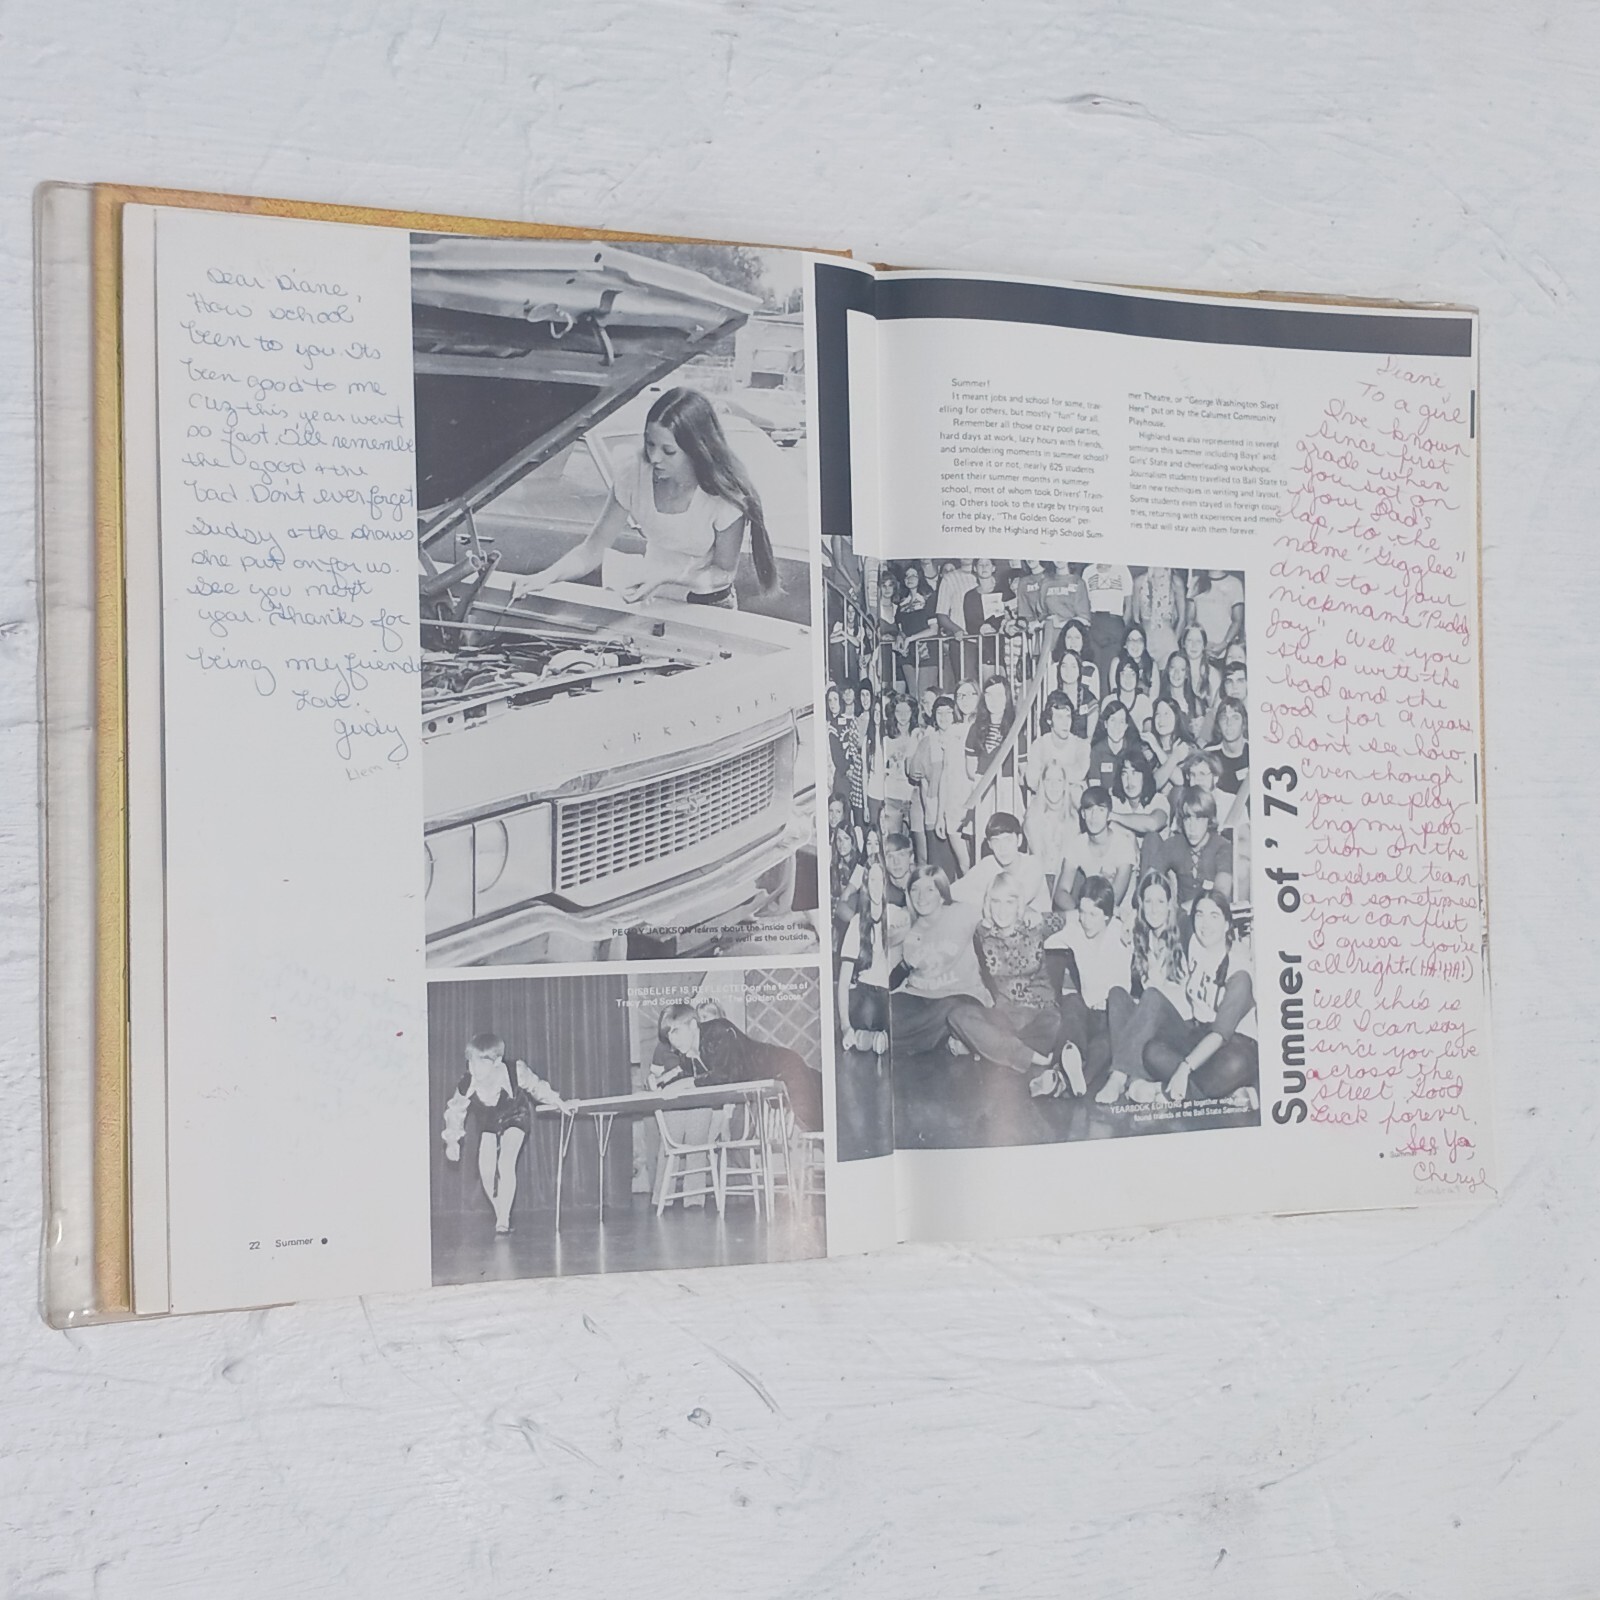 Dear Diane,
How school
been to you. Its
been good to me
cuz this year went
so fast. I'll remember
the good & the
bad. Don't ever forget
Sudsy & the shows
she put on for us.
See you next
year. Thanks for
being my friend
Love,
Judy
PEGGY JACKSON learns about the inside of the
car as well as the outside.
DISBELIEF IS REFLECTED on the faces of
Tracy and Scott in "The Golden Goose."
22 Summer
Summer!
It meant jobs and school for some, trav-
elling for others, but mostly "fun" for all.
Remember all those crazy pool parties,
hard days at work, lazy hours with friends,
and smoldering moments in summer school?
Believe it or not, nearly 625 students
spent their summer months in summer
school, most of whom took Drivers' Train-
ing. Others took to the stage by trying out
for the play, "The Golden Goose" per-
formed by the Highland High School Sum-
mer Theatre, or "George Washington Slept
Here" put on by the Calumet Community
Playhouse.
Highland was also represented in several
seminars this summer including Boys' and
Girls' State and cheerleading workshops.
Journalism students travelled to Ball State to
learn new techniques in writing and layout.
Some students even stayed in foreign coun-
tries, returning with experiences and memo-
ries that will stay with them forever.
YEARBOOK EDITORS get together with new
found friends at the Ball State Seminar.
Summer of '73
Diane
To a girl
I've known
since first
grade when
you sat on
your Dad's
lap, to the
name "Giggles"
and to your
nickname "Puddy
Jay" Well you
stuck with the
bad and the
good for 9 years
I don't see how.
Even though
you are play-
ing my posi-
tion on the
baseball team
and sometimes
you can putt
I guess you're
all right. (HA! HA!)
Well this is
all I can say
since you live
across the
street. Good
Luck forever.
See Ya,
Cheryl
Summer